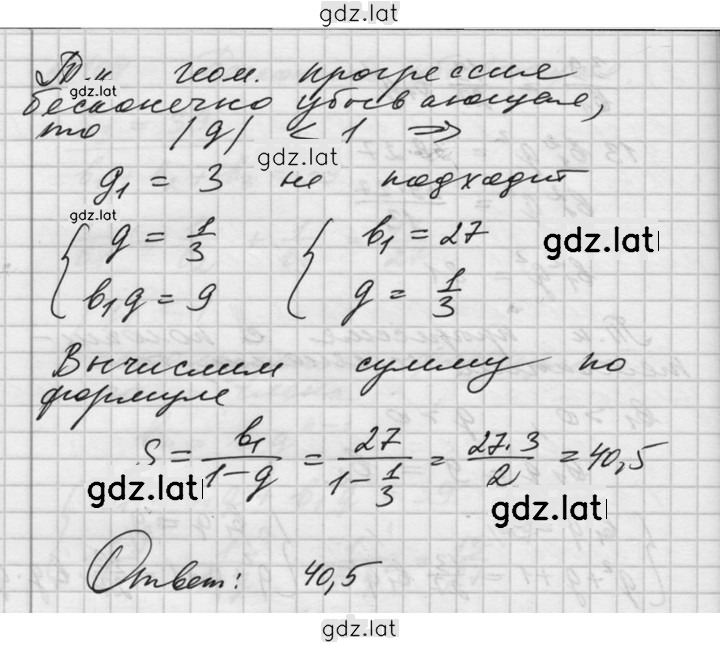 gdz.lat
Т.к геом. прогрессия
gdz.lat
бесконечно убывающая,
то |q| < 1 ⇒
gdz.lat
q₁ = 3 не подходит
gdz.lat
{ q = 1/3 { b₁ = 27
gdz.lat
b₁q = 9 q = 1/3
Вычислим сумму по
формуле
S = b₁/(1-q) = 27/(1-1/3) = 27·3/2 = 40,5
gdz.lat
gdz.lat
Ответ: 40,5
gdz.lat